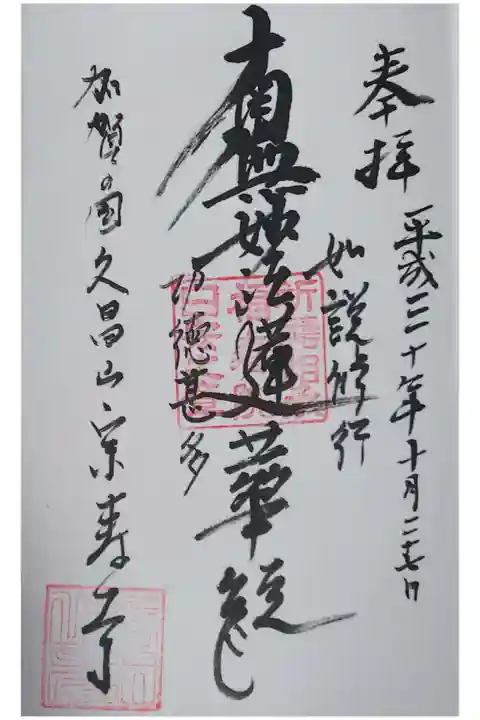 奉拝 平成三十年十月二十七日
如説修行
南無妙法蓮華経
功徳甚多
加賀の国久昌山宗寿寺